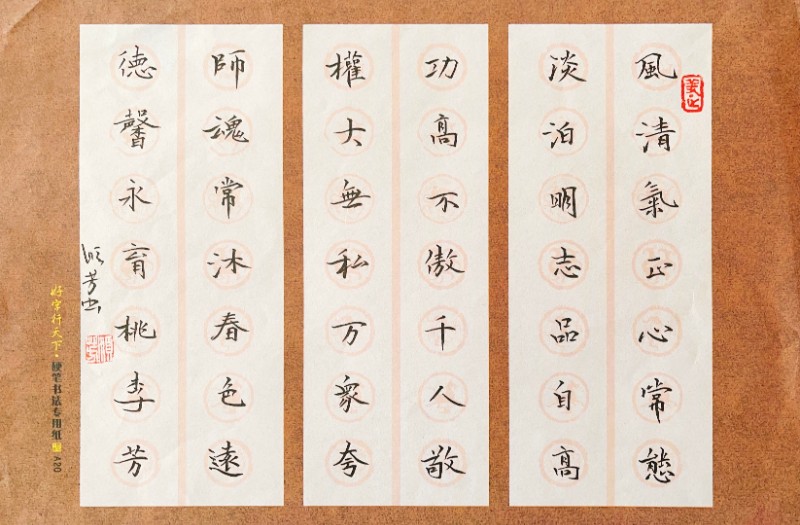 風清氣正心常態
淡泊明志品自高
功高不傲千人敬
權大無私万衆夸
師魂常沐春色遠
德馨永育桃李芳
好字行天下·硬笔书法专用纸 A20